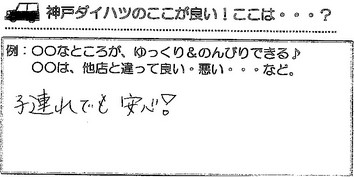 神戸ダイハツのここが良い！ここは・・・？
例：〇〇なところが、ゆっくり＆のんびりできる♪
〇〇は、他店と違って良い・悪い・・・など。
子連れでも 安心！